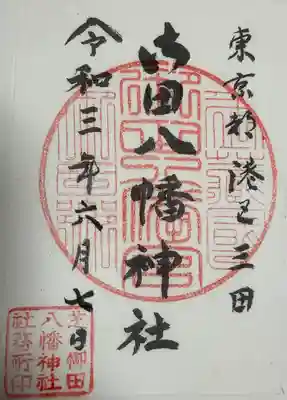 東京都港区三田
御田八幡神社
令和三年六月七日
芝御田
八幡神社
社務所印